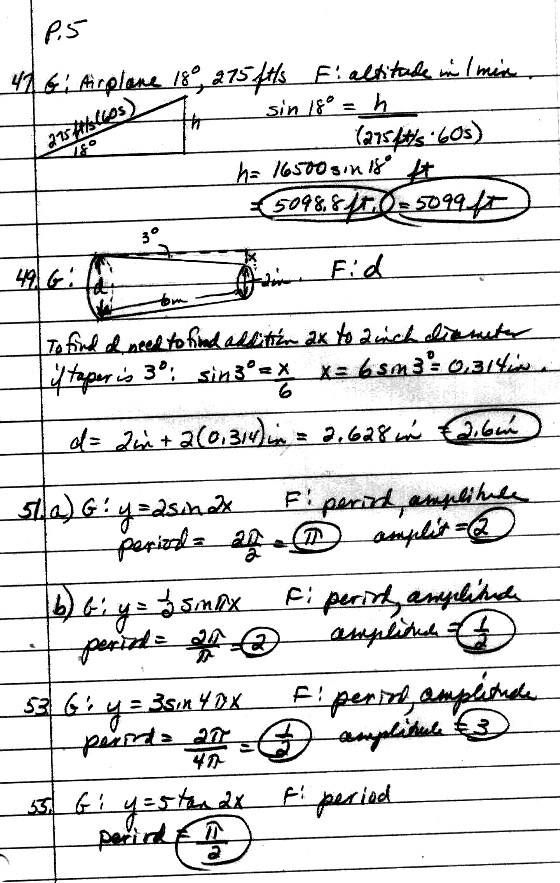 P.5
47. G: Airplane 18°, 275 ft/s F: altitude in 1 min.
275 ft/s (60s)
18°
h
sin 18° = h / (275 ft/s · 60s)
h = 16500 sin 18° ft
= 5098.8 ft. = 5099 ft
49. G: 3° x d 6in 2in. F: d
To find d, need to find addition 2x to 2 inch diameter
if taper is 3°: sin 3° = x/6 x = 6 sin 3° = 0.314 in.
d = 2in + 2(0.314)in = 2.628 in = 2.6in
51. a) G: y = 2 sin 2x F: period, amplitude
period = 2π/2 = π amplit = 2
b) G: y = 1/2 sin πx F: period, amplitude
period = 2π/π = 2 amplitude = 1/2
53. G: y = 3 sin 4πx F: period, amplitude
period = 2π/4π = 1/2 amplitude = 3
55. G: y = 5 tan 2x F: period
period = π/2